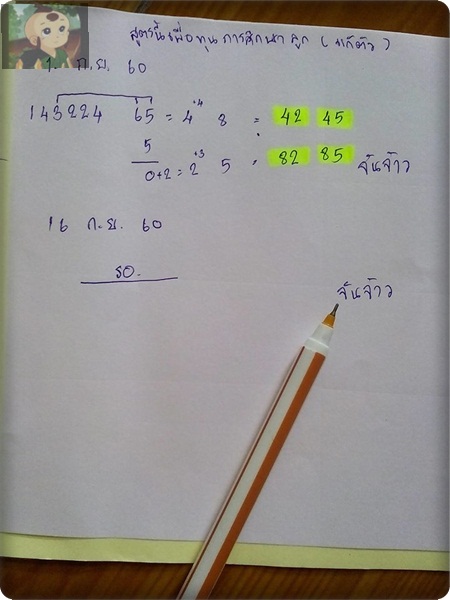 สูตรนี้เพื่อทุนการศึกษาลูก (แก้ตัว)
1. ก.ย. 60
143224 65 = 4 +4 8 = 42 45
5
0+2 = 2 +3 5 = 82 85 จันจ้าว
16 ก.ย. 60
รอ.
จันจ้าว